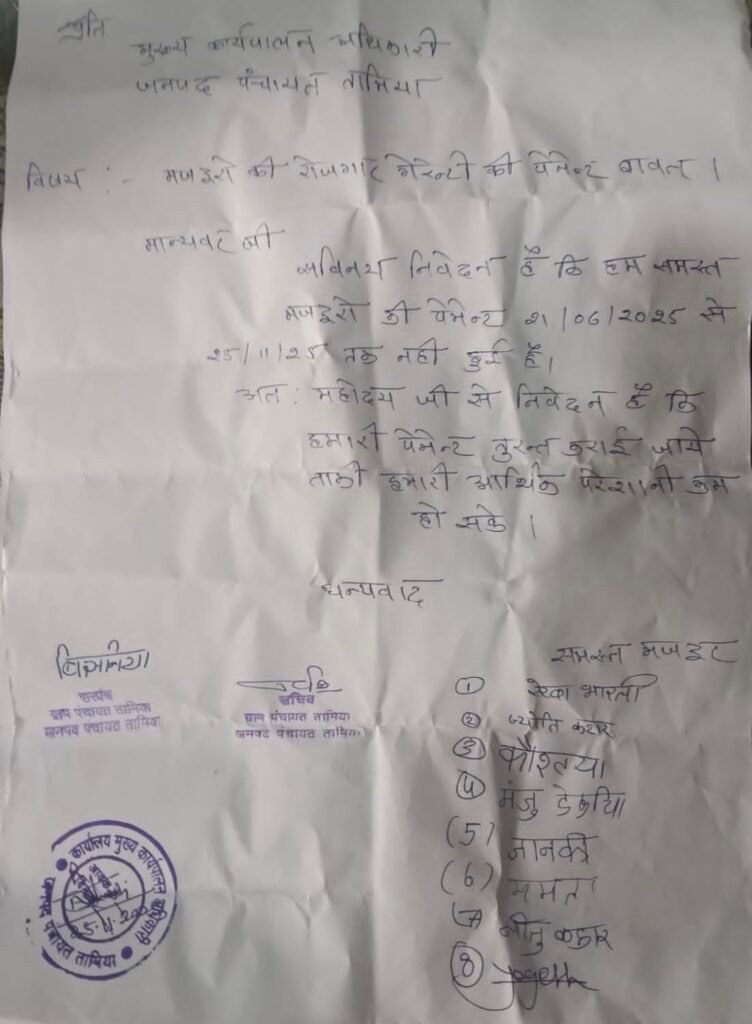 प्रति
मुख्य कार्यपालन अधिकारी
जनपद पंचायत तामिया
विषय :- मजदुरो की रोजगार गेरेन्टी की पेमेन्ट बावत ।
मान्यवर जी
सविनय निवेदन है कि हम समस्त
मजदुरो की पेमेन्ट 21/06/2025 से
25/11/25 तक नही हुई है।
अत : महोदय जी से निवेदन है कि
हमारी पेमेन्ट तुरन्त कराई जाये
ताकी हमारी आर्थिक परेशानी कम
हो सके ।
धन्यवाद
समस्त मजदुर
सरपंच
ग्राम पंचायत तामिया
जनपद पंचायत तामिया
सचिव
ग्राम पंचायत तामिया
जनपद पंचायत तामिया
① रेखा भारती
② ज्योति कहार
③ कौशल्या
④ मंजु डेहरिया
(5) जानकी
(6) ममता
⑦ नीतु कहार
⑧
कार्यालय मुख्य कार्यपालन अधिकारी
जनपद पंचायत तामिया